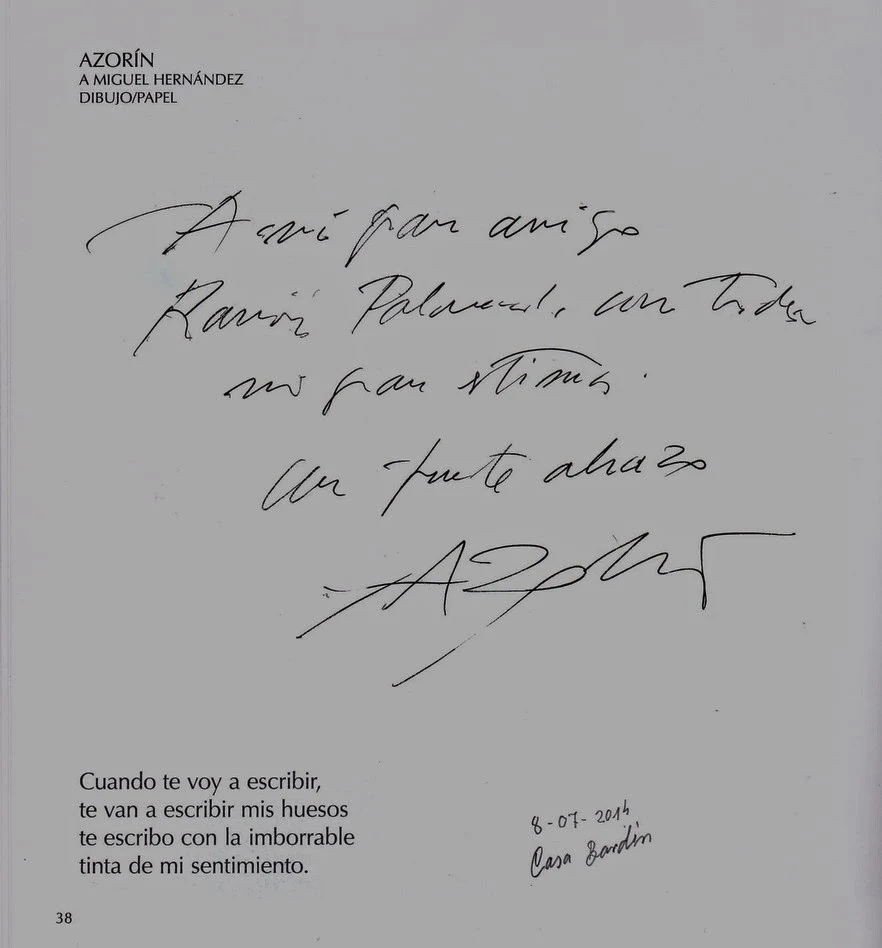 AZORÍN
A MIGUEL HERNÁNDEZ
DIBUJO/PAPEL
A mi gran amigo
Ramón Palmeral, con toda
mi gran estima.
Un fuerte abrazo
AZORÍN
Cuando te voy a escribir,
te van a escribir mis huesos
te escribo con la imborrable
tinta de mi sentimiento.
8-07-2014
Casa Bardin
38